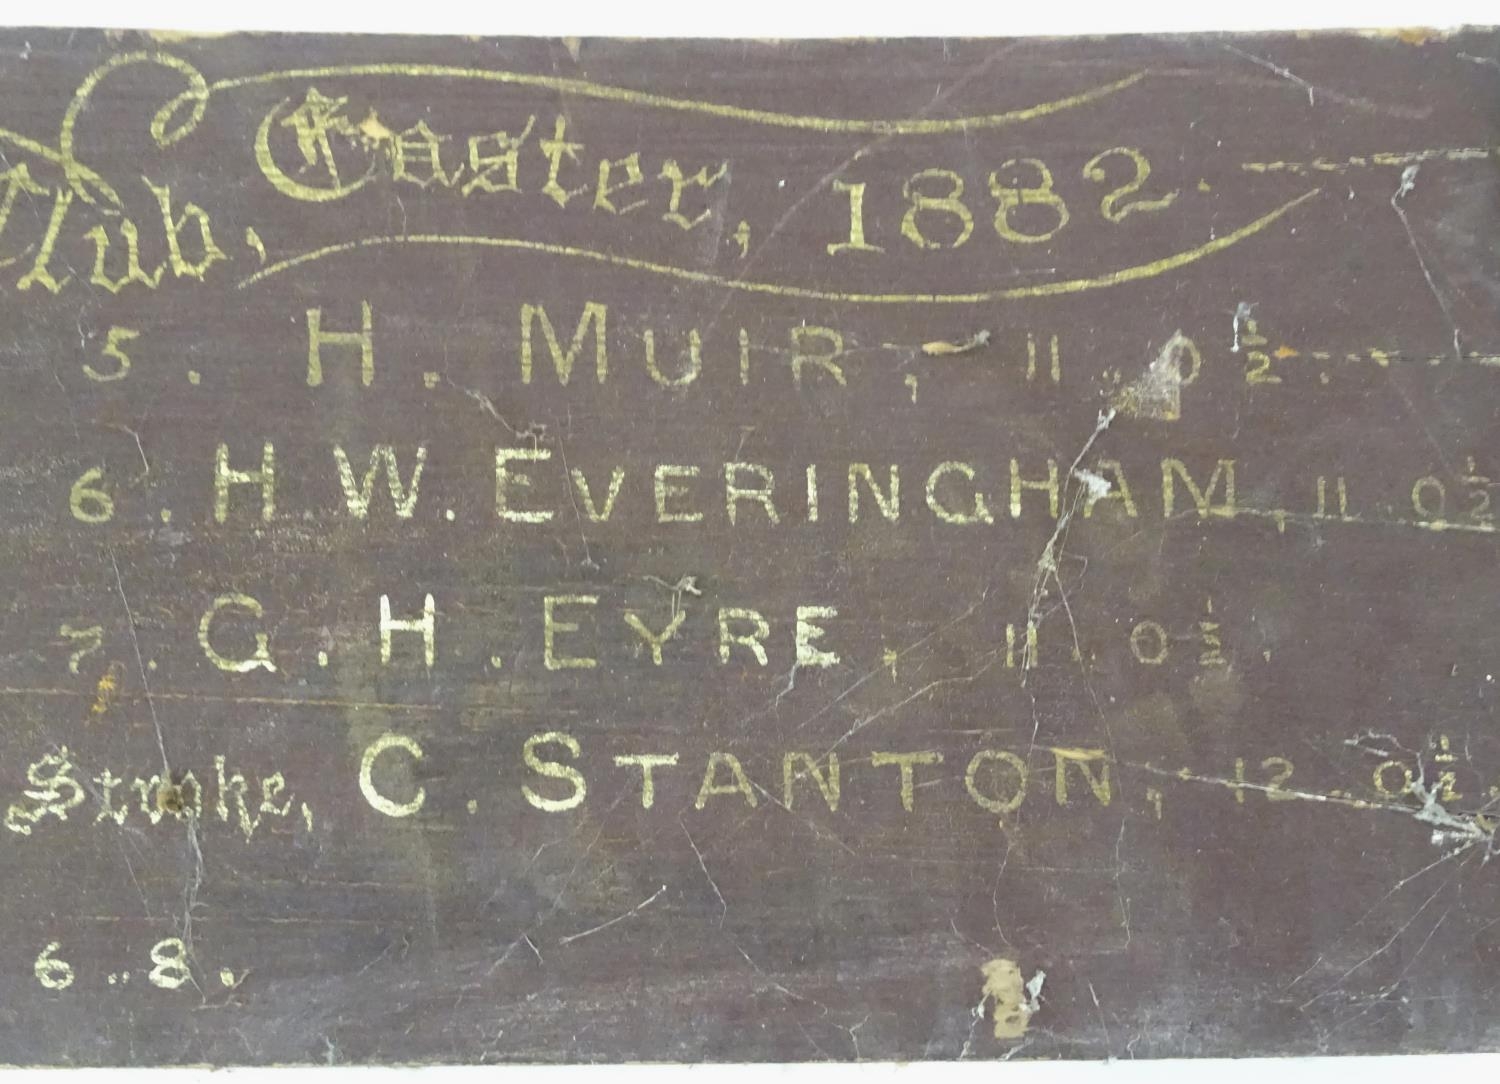 Club, Easter, 1882.
5. H. MUIR, 11 .. 0½.
6. H.W. EVERINGHAM, 11 .. 0½
7. G. H. EYRE, 11 .. 0½.
Stroke, C. STANTON, 12 .. 0½.
6 .. 8.